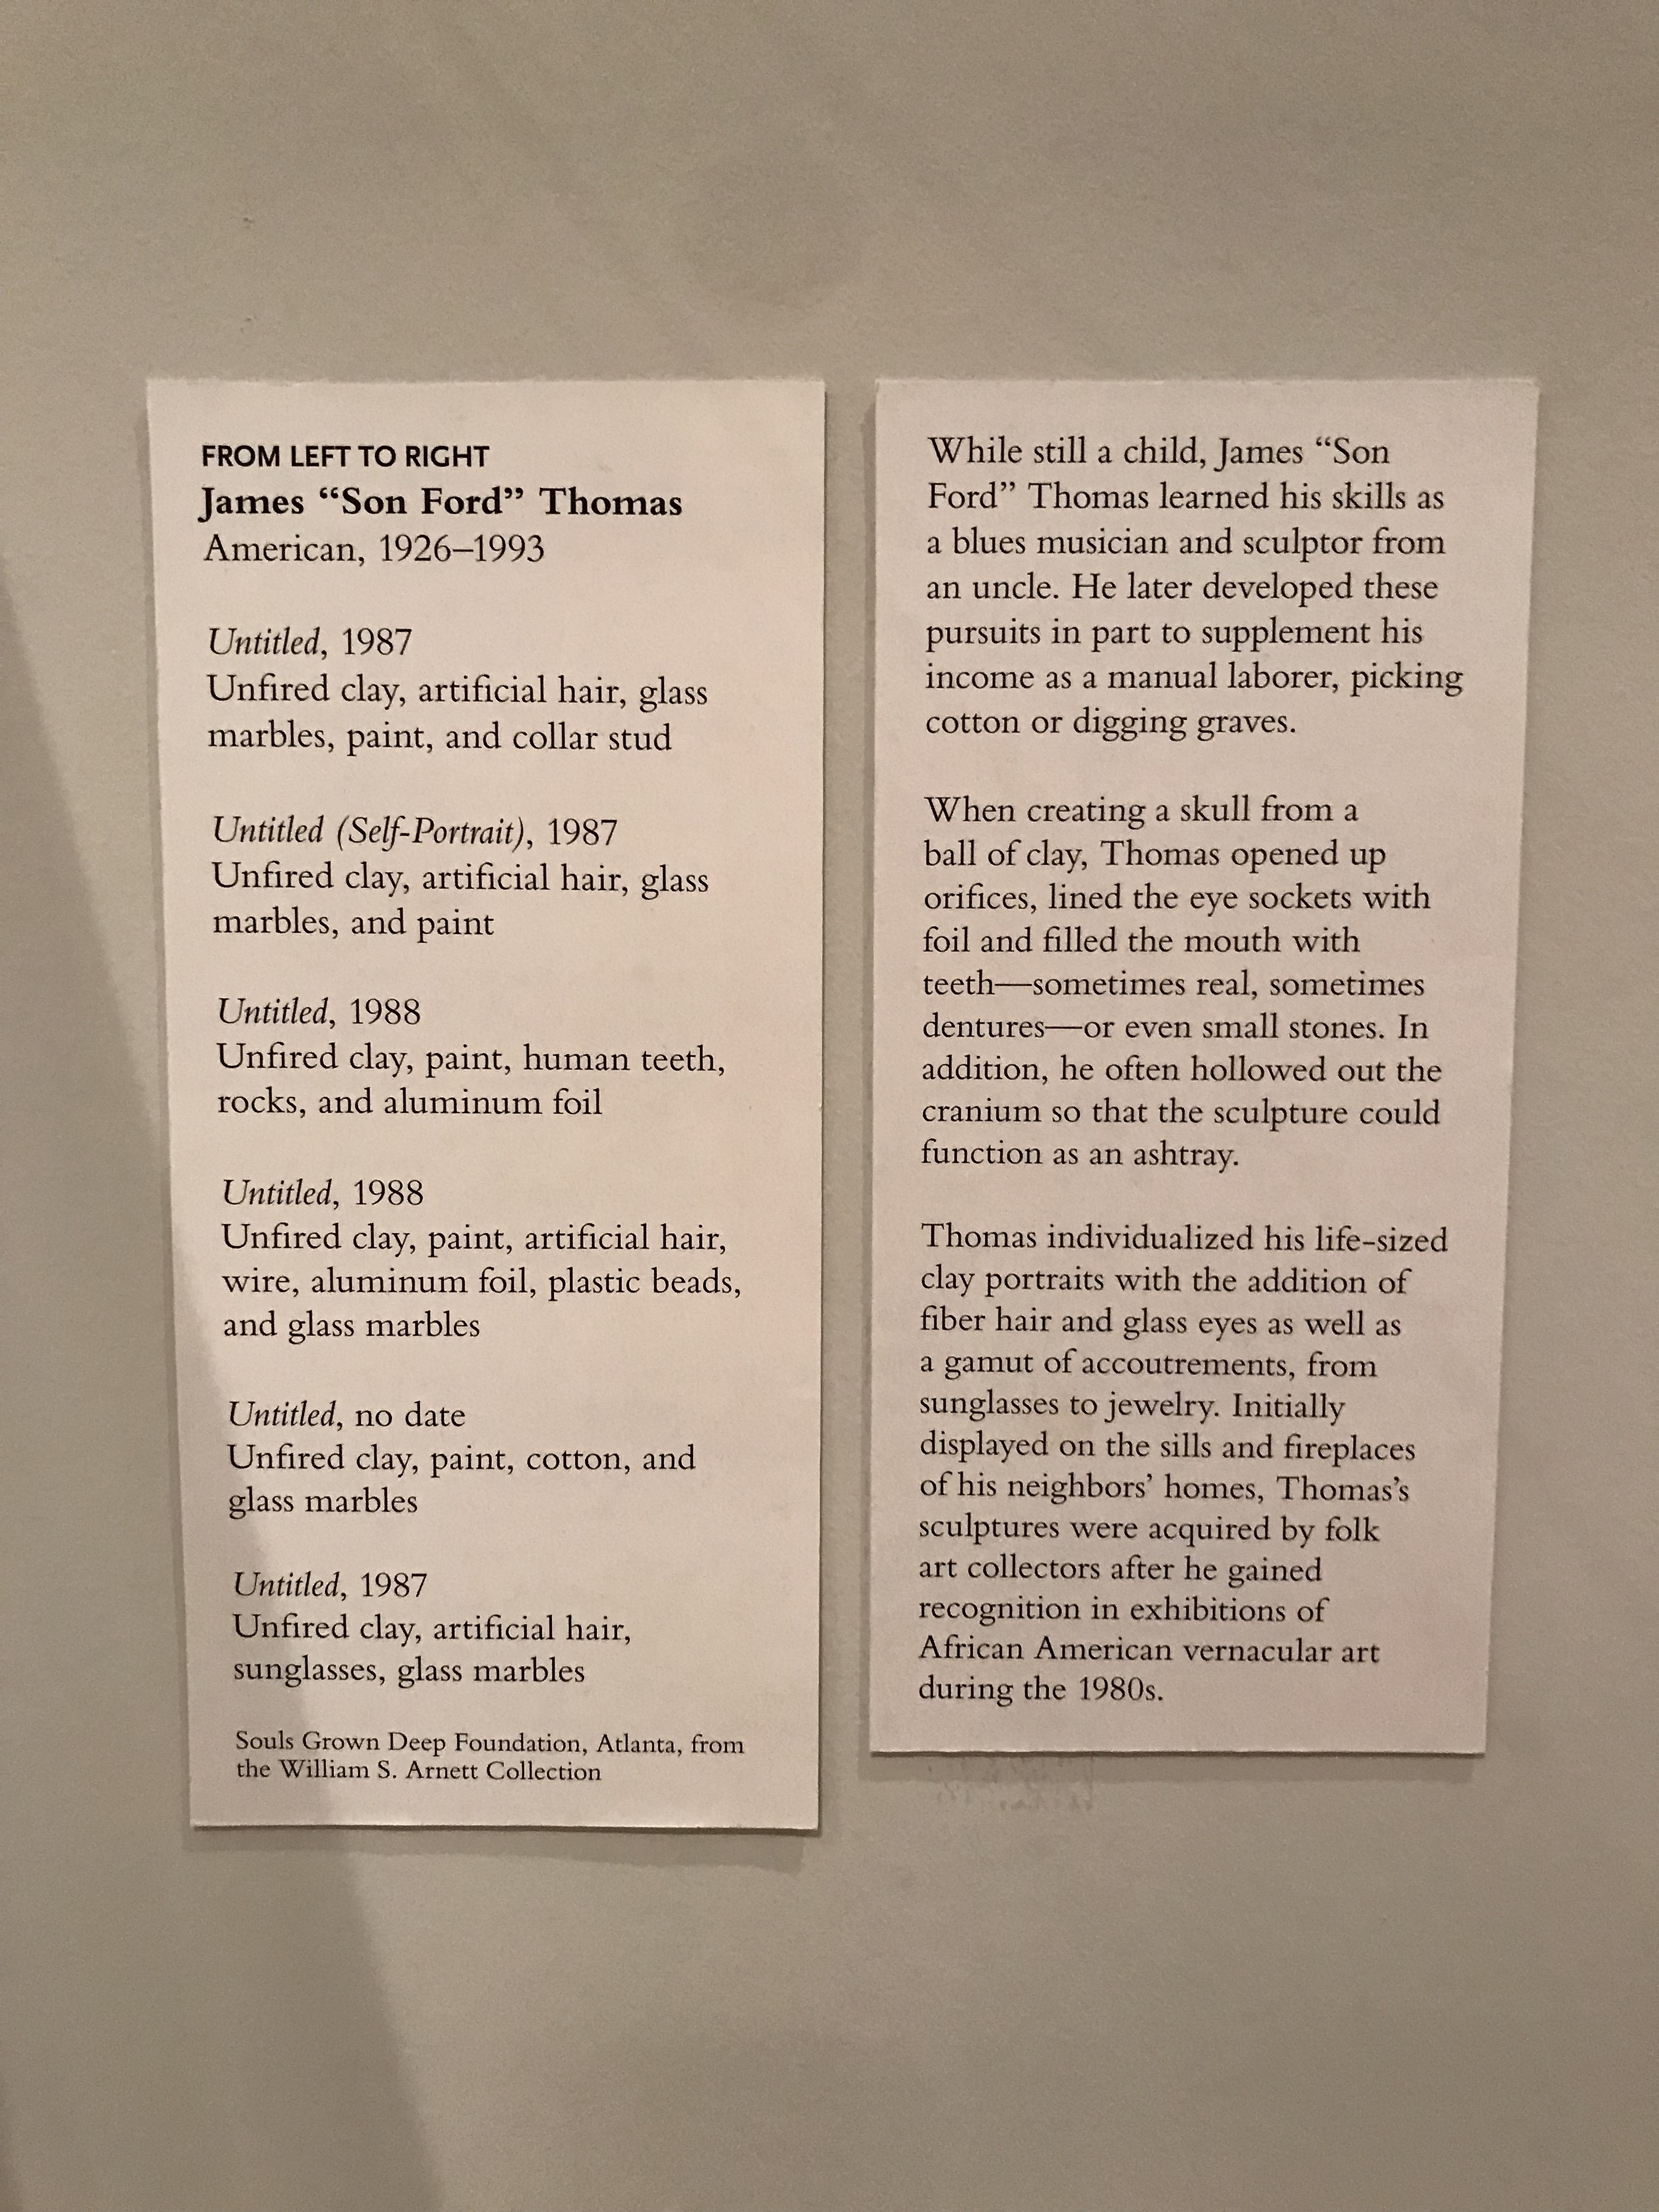 FROM LEFT TO RIGHT
James “Son Ford” Thomas
American, 1926–1993
Untitled, 1987
Unfired clay, artificial hair, glass
marbles, paint, and collar stud
Untitled (Self-Portrait), 1987
Unfired clay, artificial hair, glass
marbles, and paint
Untitled, 1988
Unfired clay, paint, human teeth,
rocks, and aluminum foil
Untitled, 1988
Unfired clay, paint, artificial hair,
wire, aluminum foil, plastic beads,
and glass marbles
Untitled, no date
Unfired clay, paint, cotton, and
glass marbles
Untitled, 1987
Unfired clay, artificial hair,
sunglasses, glass marbles
Souls Grown Deep Foundation, Atlanta, from
the William S. Arnett Collection
While still a child, James “Son
Ford” Thomas learned his skills as
a blues musician and sculptor from
an uncle. He later developed these
pursuits in part to supplement his
income as a manual laborer, picking
cotton or digging graves.
When creating a skull from a
ball of clay, Thomas opened up
orifices, lined the eye sockets with
foil and filled the mouth with
teeth—sometimes real, sometimes
dentures—or even small stones. In
addition, he often hollowed out the
cranium so that the sculpture could
function as an ashtray.
Thomas individualized his life-sized
clay portraits with the addition of
fiber hair and glass eyes as well as
a gamut of accoutrements, from
sunglasses to jewelry. Initially
displayed on the sills and fireplaces
of his neighbors’ homes, Thomas’s
sculptures were acquired by folk
art collectors after he gained
recognition in exhibitions of
African American vernacular art
during the 1980s.